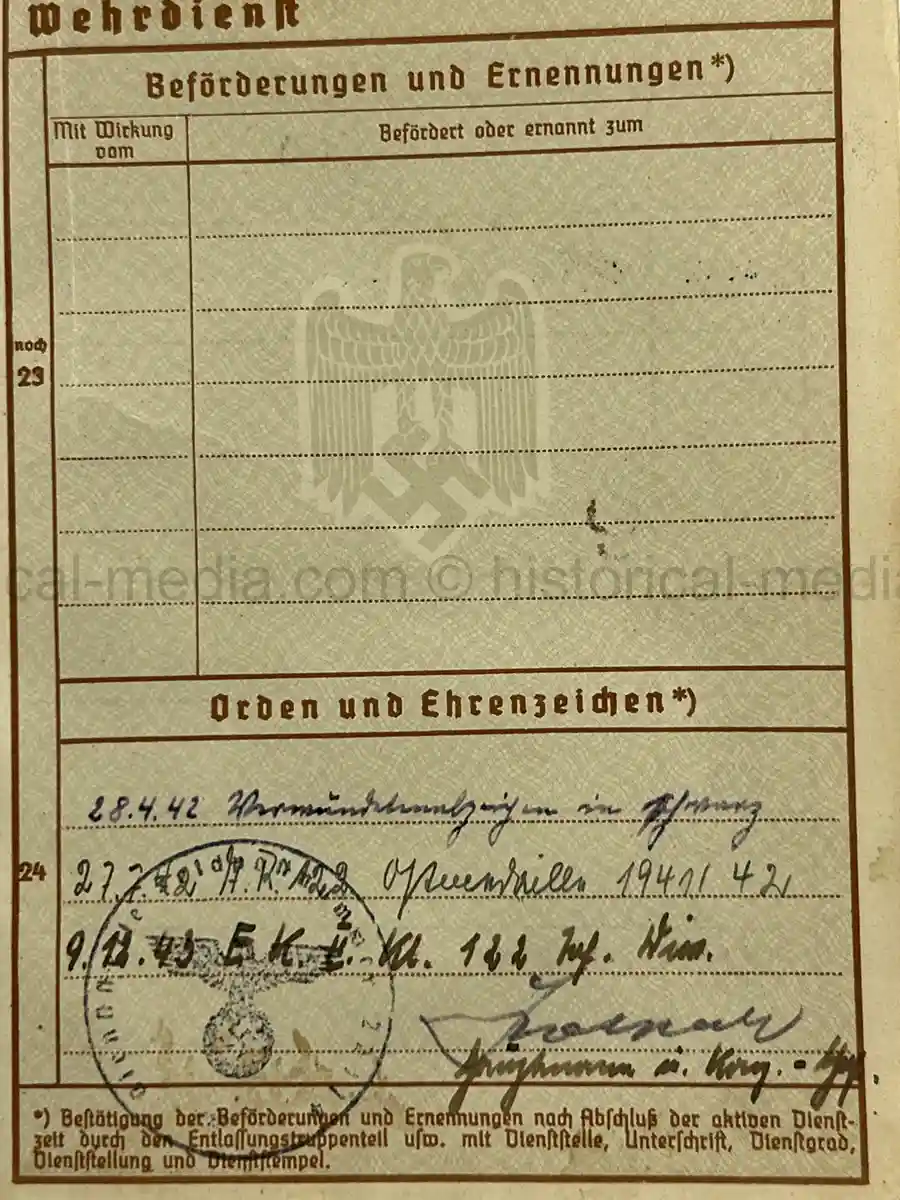 Wehrdienst
Beförderungen und Ernennungen*)
Mit Wirkung vom
Befördert oder ernannt zum
noch
23
cal-media.com © historical-media
Orden und Ehrenzeichen*)
28.4.42 Verwundetenabzeichen in schwarz
24
Ostmedaille 1941/42
9.12.43 E. K. II. Kl. 122 Inf. Div.
Hauptmann u. Komp.-Chef.
*) Bestätigung der Beförderungen und Ernennungen nach Abschluß der aktiven Dienst-
zeit durch den Entlassungstruppenteil usw. mit Dienststelle, Unterschrift, Dienstgrad,
Dienststellung und Dienststempel.